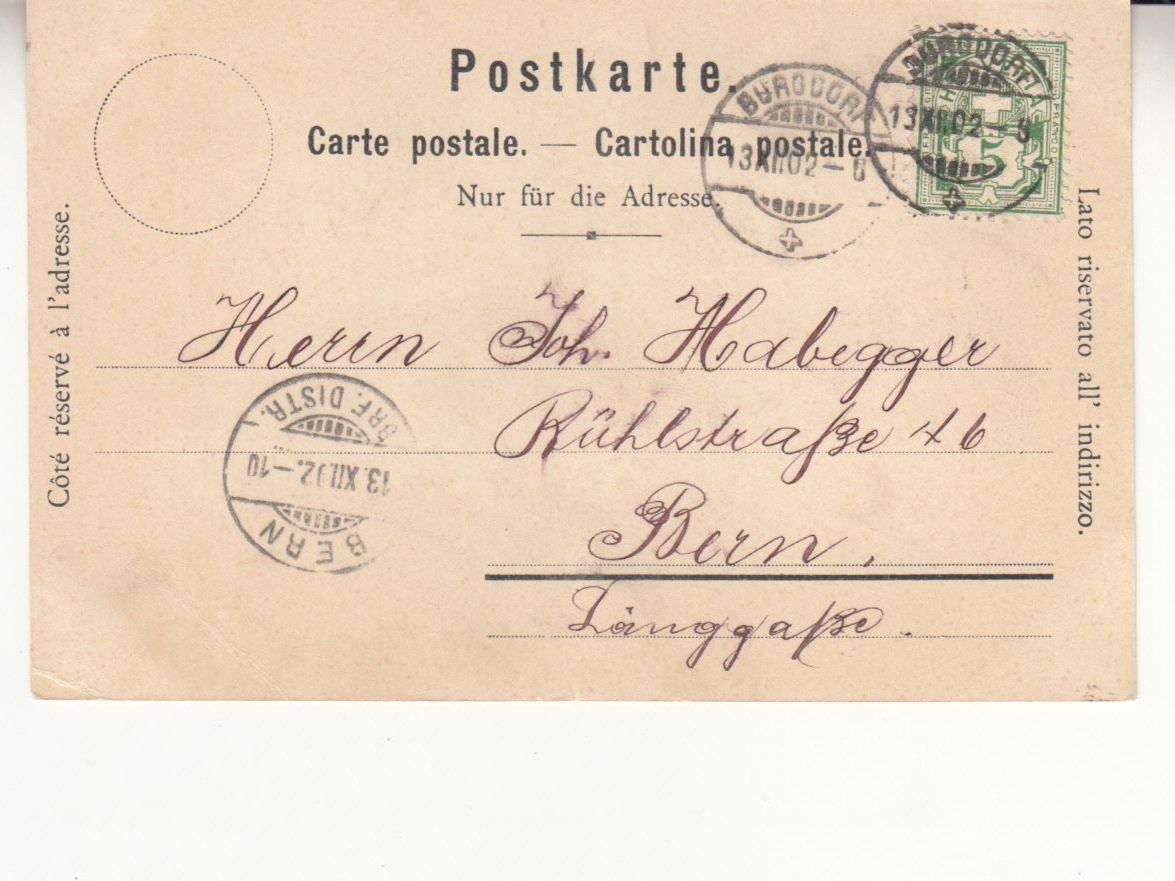 Postkarte.
Carte postale. — Cartolina postale.
Nur für die Adresse.
Côté réservé à l'adresse.
Lato riservato all' indirizzo.
BURGDORF
13.XII.02-6
BURGDORF
13.XII.02-
FRANCO
5
Herrn Joh. Habegger
Rühlstraße 46
Bern,
Länggaße.
BRF. DISTR.
13.XII.02.-10
BERN